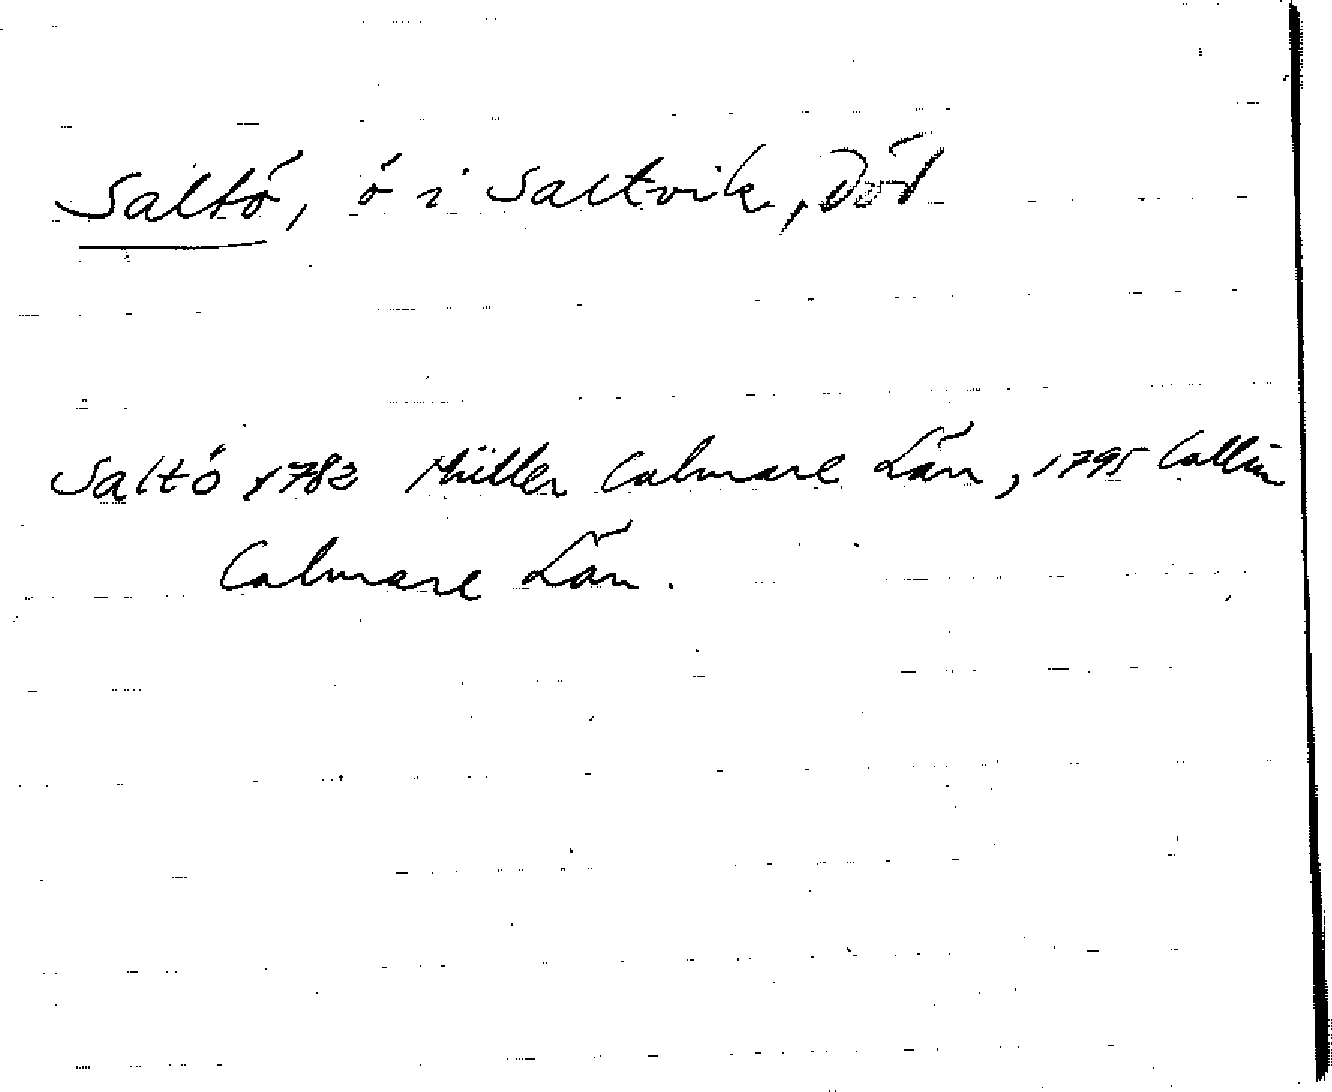 Saltö, ö i Saltvik, Död
Saltö 1782 Müller Calmare Län, 1795 Collin
Calmare Län.